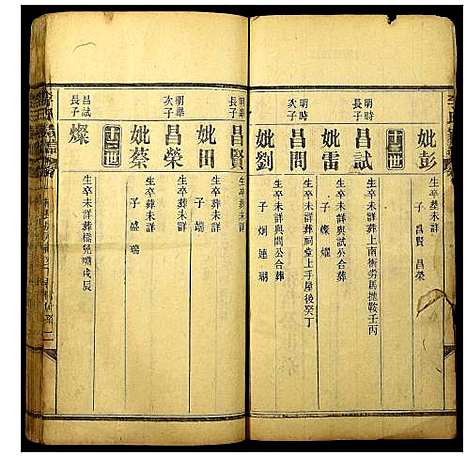 妣彭 生卒葬未詳
子 昌賢 昌榮
十二世
明時長子
昌試 生卒未詳葬上南衝勞馬拋鞍壬丙
妣雷 生卒未詳與試公合葬
子 燦 燿
明時次子
昌問 生卒未詳葬祠堂上手屋後癸丁
妣劉 生卒未詳與問公合葬
子
明舉長子
昌賢 生卒葬未詳
妣田 生卒葬未詳
子
明舉次子
昌榮 生卒葬未詳
妣蔡 生卒葬未詳
子 盛
十三世
昌試長子
燦 生卒未詳葬